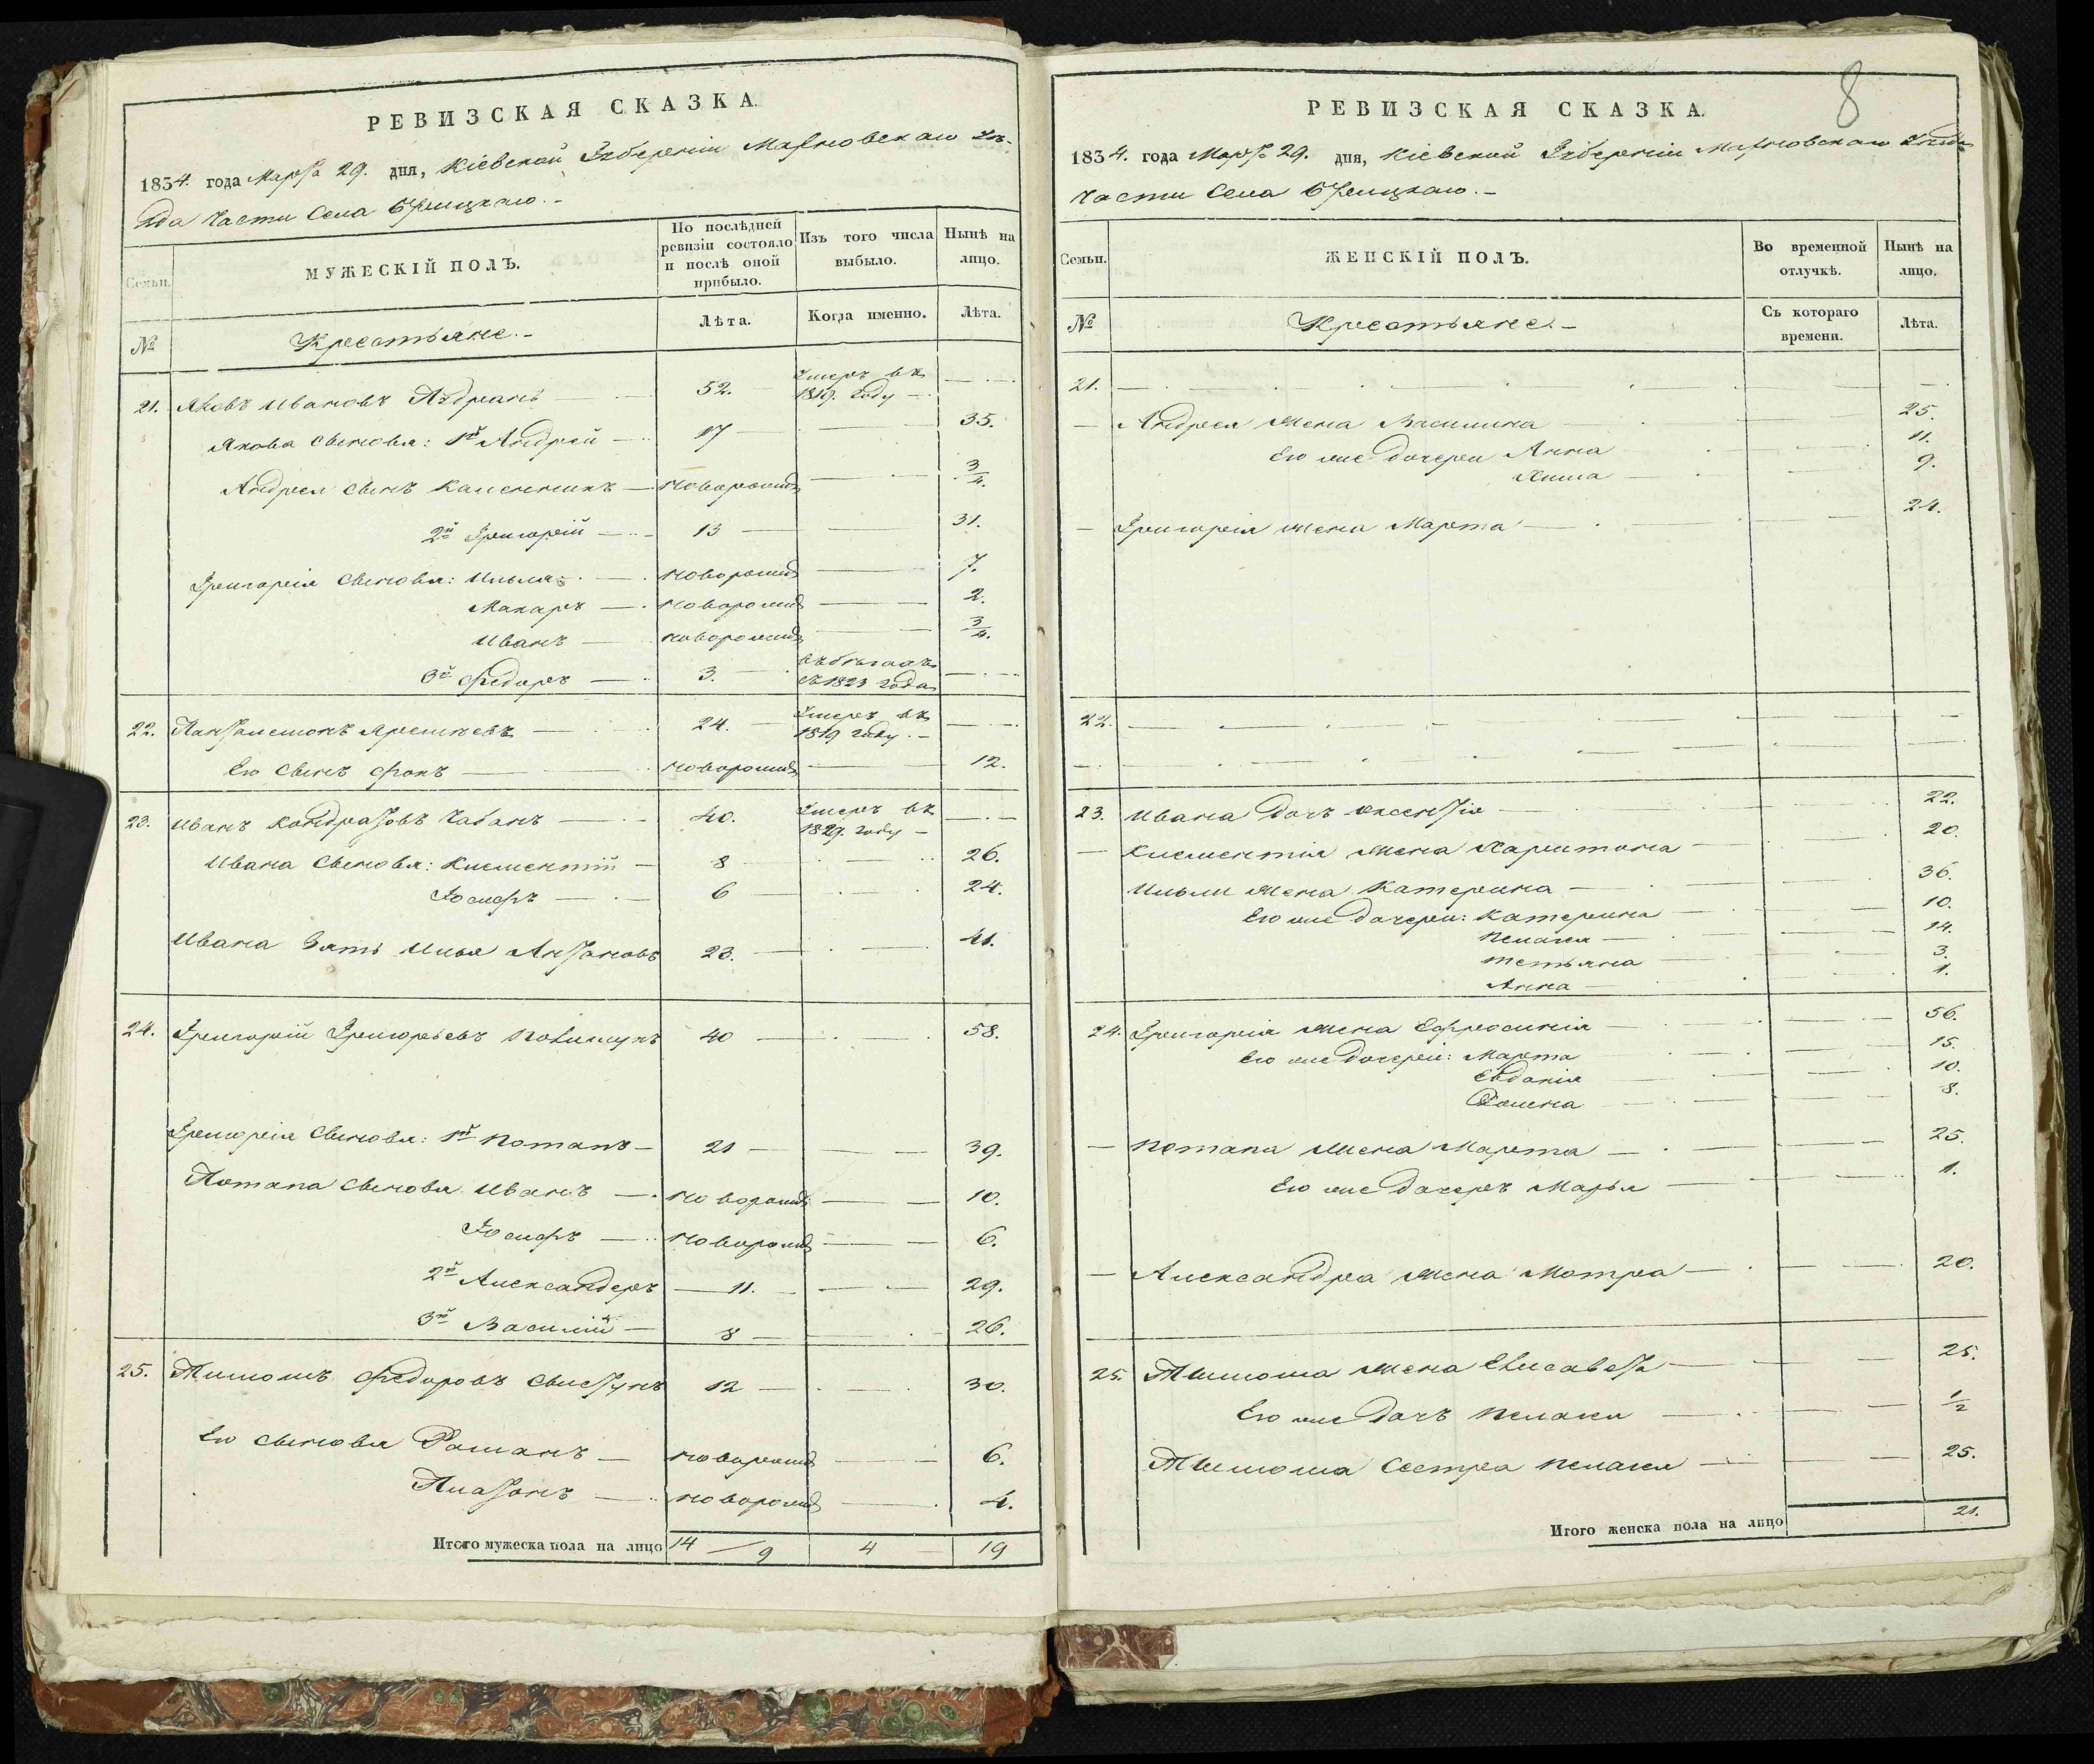 РЕВИЗСКАЯ СКАЗКА.
1834. года Марта 29. дня, Кіевской Губерніи Махновскаго Уѣ-
зда Части Села
Семьи.
МУЖЕСКІЙ ПОЛЪ.
По послѣдней ревизіи состояло и послѣ оной прибыло.
Изъ того числа выбыло.
Нынѣ на лицо.
№
Крестьяне.
Лѣта.
Когда именно.
Лѣта.
21. Яковъ Ивановъ 52. Умеръ въ 1819. году
Якова сыновья: 1й Андрей 17 35.
Андрея сынъ новорожд 3/4.
2й Григорій 13 31.
Григорія сыновья: Илья новорожд 7.
Макаръ новорожд 2.
Иванъ новорожд 3/4.
3й Федоръ 3. въ бѣгахъ съ 1823 года
22. Пантолемонъ 24. Умеръ въ 1819 году.
Его сынъ Фокъ новорожд 12.
23. Иванъ Кондратовъ Чабанъ 40. Умеръ въ 1829. году
Ивана сыновья: Климентій 8 26.
Іосифъ 6 24.
Ивана Зять Илья Антоновъ 23. 41.
24. Григорій Григорьевъ 40 58.
Григорія сыновья: 1й Потапъ 21 39.
Потапа сыновья Иванъ новорожд 10.
Іосифъ новорожд 6.
2й Александеръ 11. 29.
3й Василій 8 26.
25. Тимошъ Федоровъ Свистунъ 12 30.
Его сыновья Романъ новорожд 6.
Платонъ новорожд 4.
Итого мужеска пола на лицо 14 / 9 4 19
8
РЕВИЗСКАЯ СКАЗКА.
1834. года Марта 29. дня, Кіевской Губерніи Махновскаго Уѣзда
Части Села
Семьи.
ЖЕНСКІЙ ПОЛЪ.
Во временной отлучкѣ.
Нынѣ на лицо.
№
Крестьяне.
Съ котораго времени.
Лѣта.
21.
Андрея жена Василина 25.
Его же дочери Анна 11.
9.
Григорія жена Марта 24.
22.
23. Ивана дочъ Оксентія 22.
Климентія жена Харитона 20.
Ильи жена Катерина 36.
Его же дочери: Катерина 10.
Пелагея 14.
Тетьяна 3.
Анна 1.
24. Григорія жена Ефросинія 56.
Его же дочери: Марта 15.
Евдокія 10.
Фомена 8.
Потапа жена Марта 25.
Его же дочеръ Марья 1.
Александра жена Мотра 20.
25. Тимоша жена Елисавета 25.
Его же дочъ Пелагея 1/2
Тимоша Сестра Пелагея 25.
Итого женска пола на лицо 21.